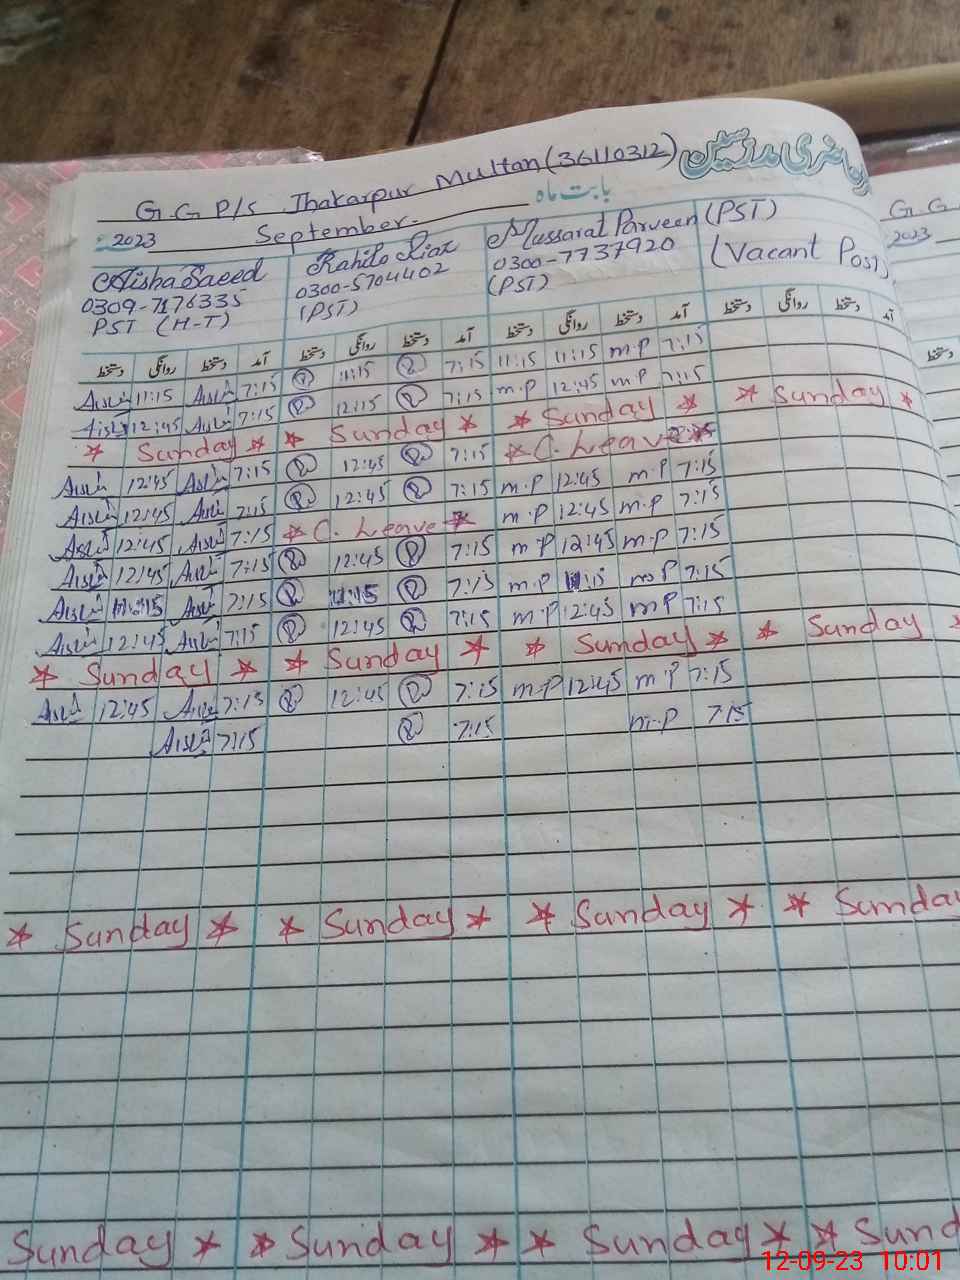 حاضری مدرسین
G.G P/S Jhakarpur Multan (36110312)
بابت ماه
2023 September.
Aisha Saeed
0309-7176335
PST (H-T)
0300-5704402
(PST)
Mussarat Parveen
0300-7737920
(PST)
(PST)
(Vacant Post)
دستخط روانگی دستخط آمد دستخط روانگی دستخط آمد دستخط روانگی دستخط آمد دستخط روانگی دستخط آمد
11:15 7:15 11:15 7:15 11:15 11:15 m.P 7:15
12:45 7:15 12:15 7:15 m.P 12:45 m.P 7:15
* Sunday * * Sunday * * Sunday * * Sunday *
12:45 7:15 12:45 7:15 * C. Leave
12:45 7:15 12:45 7:15 m.P 12:45 m.P 7:15
12:45 7:15 * C. Leave * m.P 12:45 m.P 7:15
12:45 7:15 12:45 7:15 m.P 12:45 m.P 7:15
7:15 11:15 7:15 m.P 11:15 m.P 7:15
12:45 7:15 12:45 7:15 m.P 12:45 m.P 7:15
* Sunday * * Sunday * * Sunday * * Sunday *
12:45 7:15 12:45 7:15 m.P 12:45 m.P 7:15
7:15 7:15 m.P 7:15
* Sunday * * Sunday * * Sunday * * Sunday
Sunday * * Sunday * * Sunday * * Sund
G.G
2023
دستخط
12-09-23 10:01